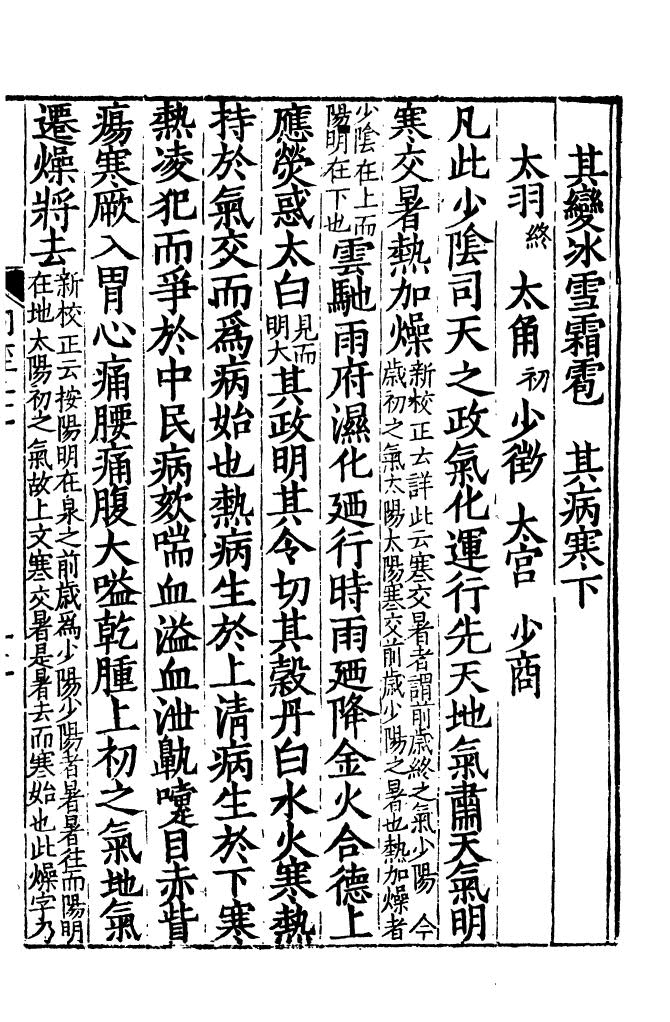 其變冰雪霜雹　其病寒下
太羽終　太角初　少徵　太宮　少商
凡此少陰司天之政氣化運行先天地氣肅天氣明
寒交暑熱加燥新校正云詳此云寒交暑者謂前歲終之氣少陽今歲初之氣太陽太陽寒交前歲少陽之暑也熱加燥者
少陰在上而陽明在下也雲馳雨府濕化廼行時雨廼降金火合德上
應熒惑太白見而明大其政明其令切其穀丹白水火寒熱
持於氣交而爲病始也熱病生於上清病生於下寒
熱凌犯而爭於中民病欬喘血溢血泄鼽嚏目赤眥
瘍寒厥入胃心痛腰痛腹大嗌乾腫上初之氣地氣
遷燥將去新校正云按陽明在泉之前歲爲少陽少陽者暑暑往而陽明在地太陽初之氣故上文寒交暑是暑去而寒始也此燥字乃